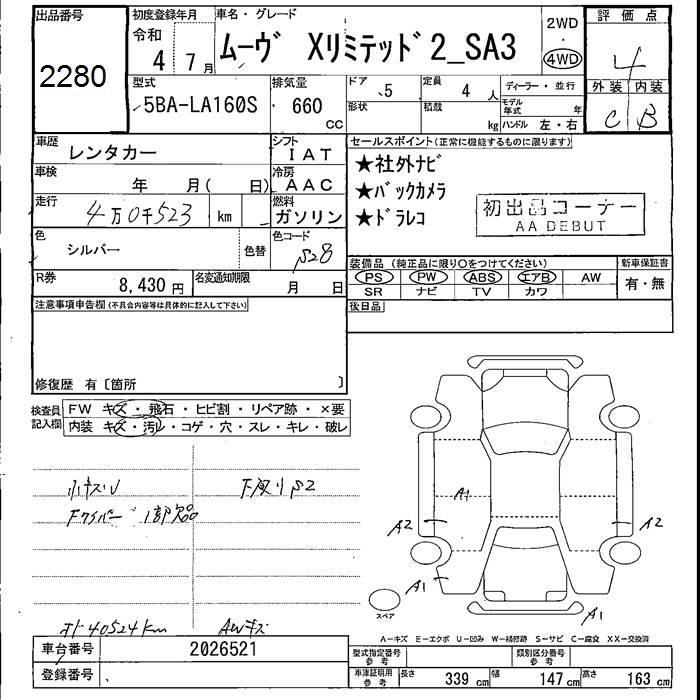 出品番号
2280
初度登録年月
令和
4 7月
車名・グレード
ムーヴ Xリミテッド2_SA3
2WD
・
4WD
評価点
4
外装 内装
C B
型式
5BA-LA160S
排気量
660
cc
ドア
5
形状
定員
4 人
積載
kg
ディーラー・並行
モデル年式 年
ハンドル 左・右
車歴
レンタカー
シフト
IAT
車検
年 月( 日)
冷房
AAC
走行
4万0千523 km
燃料
ガソリン
色
シルバー
色替
色コード
S28
R券
8,430 円
名変通知期限
月 日
セールスポイント(正常に機能するものに限ります)
★社外ナビ
★バックカメラ
★ドラレコ
初出品コーナー
AA DEBUT
装備品(純正品に限り○をつけてください)
PS PW ABS エアB AW
SR ナビ TV カワ
新車保証書
有・無
注意事項申告欄(不具合内容等は具体的に記入して下さい)
後日品
修復歴 有〔箇所 〕
検査員
記入欄
FW キズ・飛石・ヒビ割・リペア跡・×要
内装 キズ・汚レ・コゲ・穴・スレ・キレ・破レ
Fワイパー 1部欠品
オド40524km
AWキズ
A1
A2
A2
A1
A1
スペア
A―キズ E―エクボ U―凹み W―補修跡 S―サビ C―腐食 XX―交換済
車台番号
2026521
登録番号
型式指定番号
参考
類別区分番号
参考
車庫証明用
参考
長さ 339 cm
幅 147 cm
高さ 163 cm